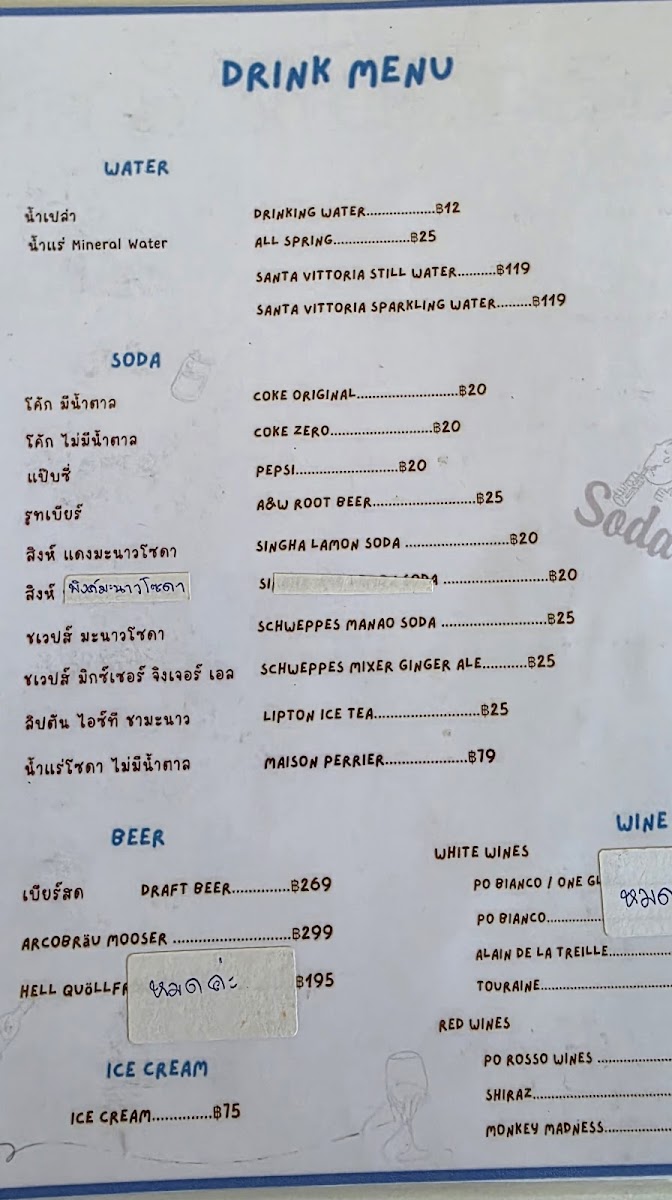 DRINK MENU
WATER
น้ำเปล่า DRINKING WATER..................฿12
น้ำแร่ Mineral Water ALL SPRING.....................฿25
SANTA VITTORIA STILL WATER..........฿119
SANTA VITTORIA SPARKLING WATER.........฿119
SODA
โค้ก มีน้ำตาล COKE ORIGINAL...........................฿20
โค้ก ไม่มีน้ำตาล COKE ZERO...........................฿20
แป๊บซี่ PEPSI...........................฿20
รูทเบียร์ A&W ROOT BEER...........................฿25
สิงห์ แดงมะนาวโซดา SINGHA LAMON SODA ...........................฿20
สิงห์ พิงค์มะนาวโซดา SI ...........................฿20
ชเวปส์ มะนาวโซดา SCHWEPPES MANAO SODA ...........................฿25
ชเวปส์ มิกซ์เซอร์ จิงเจอร์ เอล SCHWEPPES MIXER GINGER ALE............฿25
ลิปตัน ไอซ์ที ชามะนาว LIPTON ICE TEA...........................฿25
น้ำแร่โซดา ไม่มีน้ำตาล MAISON PERRIER......................฿79
Soda
BEER
เบียร์สด DRAFT BEER..............฿269
ARCOBRäU MOOSER ..............................฿299
HELL QUöLLF หมดค่ะ ฿195
ICE CREAM
ICE CREAM..............฿75
WINE
WHITE WINES
PO BIANCO / ONE หมด
PO BIANCO..............
ALAIN DE LA TREILLE..............
TOURAINE..............
RED WINES
PO ROSSO WINES ..............
SHIRAZ..............
MONKEY MADNESS..............